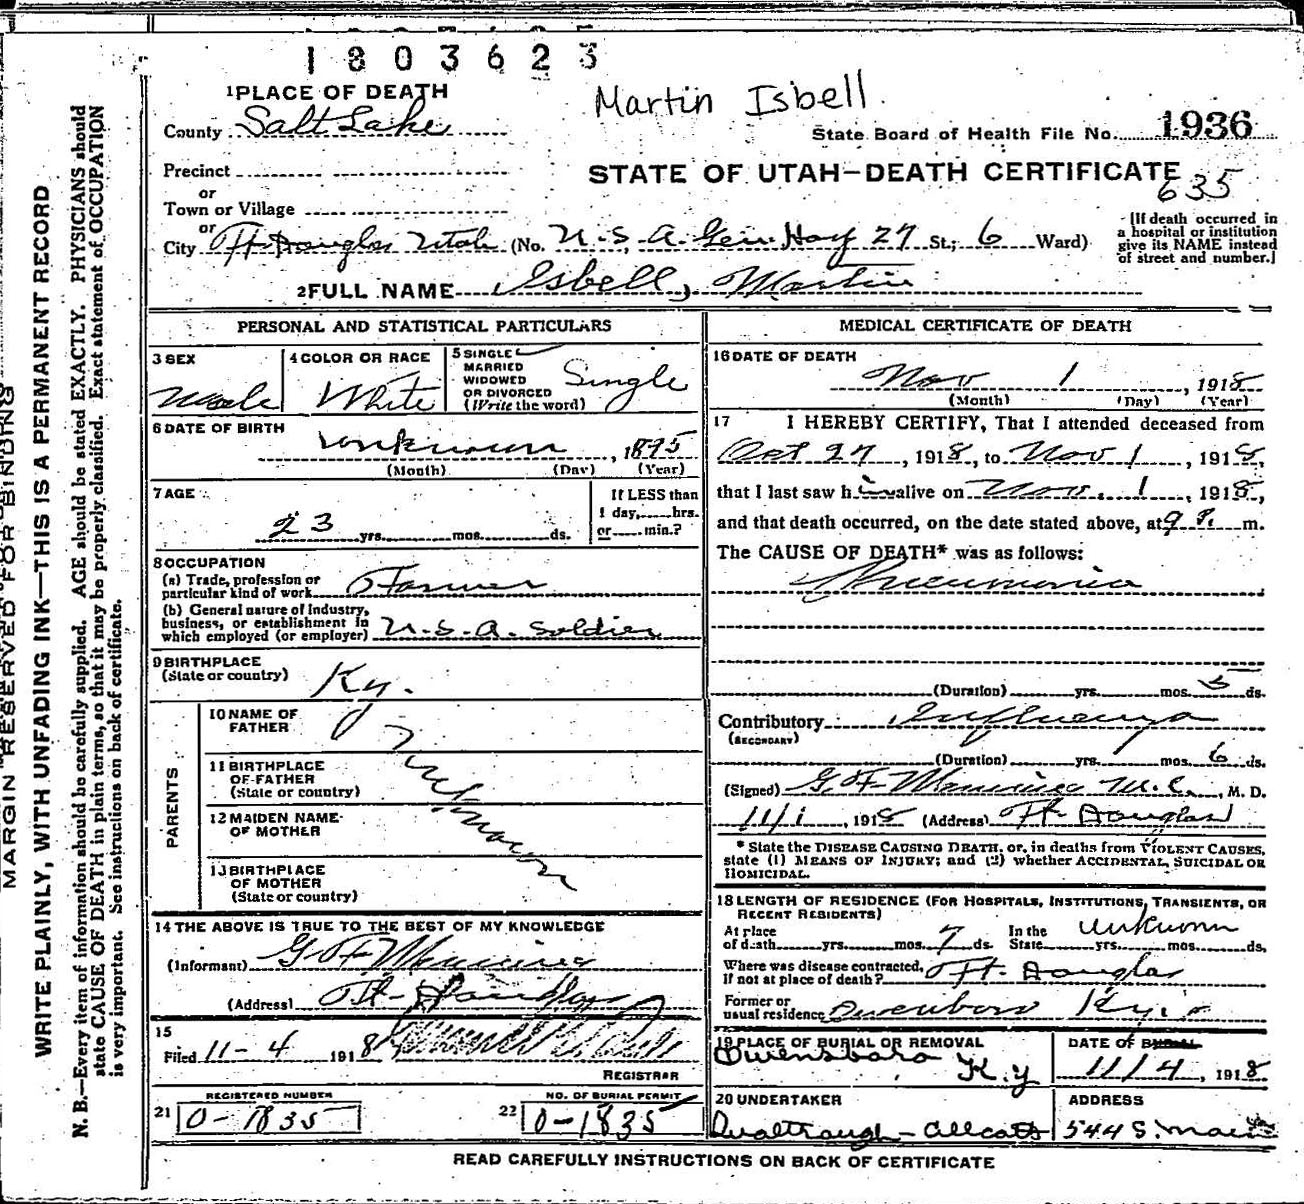 1803623
Martin Isbell
1 PLACE OF DEATH
County Salt Lake
State Board of Health File No. 1936
Precinct
STATE OF UTAH—DEATH CERTIFICATE
635
or
Town or Village
or
City Ft. Douglas Utah (No. U. S. A. Gen. 27 St.; 6 Ward)
[If death occurred in a hospital or institution give its NAME instead of street and number.]
2 FULL NAME Isbell, Martin
PERSONAL AND STATISTICAL PARTICULARS
3 SEX
Male
4 COLOR OR RACE
White
5 SINGLE
MARRIED
WIDOWED
OR DIVORCED
(Write the word)
Single
6 DATE OF BIRTH
unknown, 1895
(Month) (Day) (Year)
7 AGE
23 yrs. mos. ds.
If LESS than
1 day, hrs.
or min.?
8 OCCUPATION
(a) Trade, profession or
particular kind of work Farmer
(b) General nature of Industry,
business, or establishment in
which employed (or employer) U. S. A. Soldier
9 BIRTHPLACE
(State or country) Ky.
PARENTS
10 NAME OF
FATHER
11 BIRTHPLACE
OF FATHER
(State or country)
12 MAIDEN NAME
OF MOTHER
13 BIRTHPLACE
OF MOTHER
(State or country)
Unknown
14 THE ABOVE IS TRUE TO THE BEST OF MY KNOWLEDGE
(Informant) G. F.
(Address) Ft. Douglas
15
Filed 11-4 1918
REGISTRAR
21 REGISTERED NUMBER
0-1835
22 NO. OF BURIAL PERMIT
0-1835
MEDICAL CERTIFICATE OF DEATH
16 DATE OF DEATH
Nov 1, 1918
(Month) (Day) (Year)
17 I HEREBY CERTIFY, That I attended deceased from
Oct 27, 1918, to Nov 1, 1918,
that I last saw him alive on Nov. 1, 1918,
and that death occurred, on the date stated above, at 9 P. m.
The CAUSE OF DEATH* was as follows:
Pneumonia
(Duration) yrs. mos. 5 ds.
Contributory Influenza
(SECONDARY)
(Duration) yrs. mos. 6 ds.
(Signed) G. F. M. C., M. D.
11/1, 1918 (Address) Ft. Douglas
* State the DISEASE CAUSING DEATH, or, in deaths from VIOLENT CAUSES,
state (1) MEANS OF INJURY; and (2) whether ACCIDENTAL, SUICIDAL OR
HOMICIDAL.
18 LENGTH OF RESIDENCE (FOR HOSPITALS, INSTITUTIONS, TRANSIENTS, OR
RECENT RESIDENTS)
At place of death yrs. mos. 7 ds. In the State unknown yrs. mos. ds.
Where was disease contracted,
If not at place of death? Ft. Douglas
Former or
usual residence Owenboro Ky.
19 PLACE OF BURIAL OR REMOVAL
Owensboro
K.y
DATE OF BURIAL
11/4, 1918
20 UNDERTAKER
ADDRESS
544 S. Main
READ CAREFULLY INSTRUCTIONS ON BACK OF CERTIFICATE
MARGIN RESERVED FOR BINDING
WRITE PLAINLY, WITH UNFADING INK—THIS IS A PERMANENT RECORD
N. B.—Every item of information should be carefully supplied. AGE should be stated EXACTLY. PHYSICIANS should
state CAUSE OF DEATH in plain terms, so that it may be properly classified. Exact statement of OCCUPATION
is very important. See instructions on back of certificate.